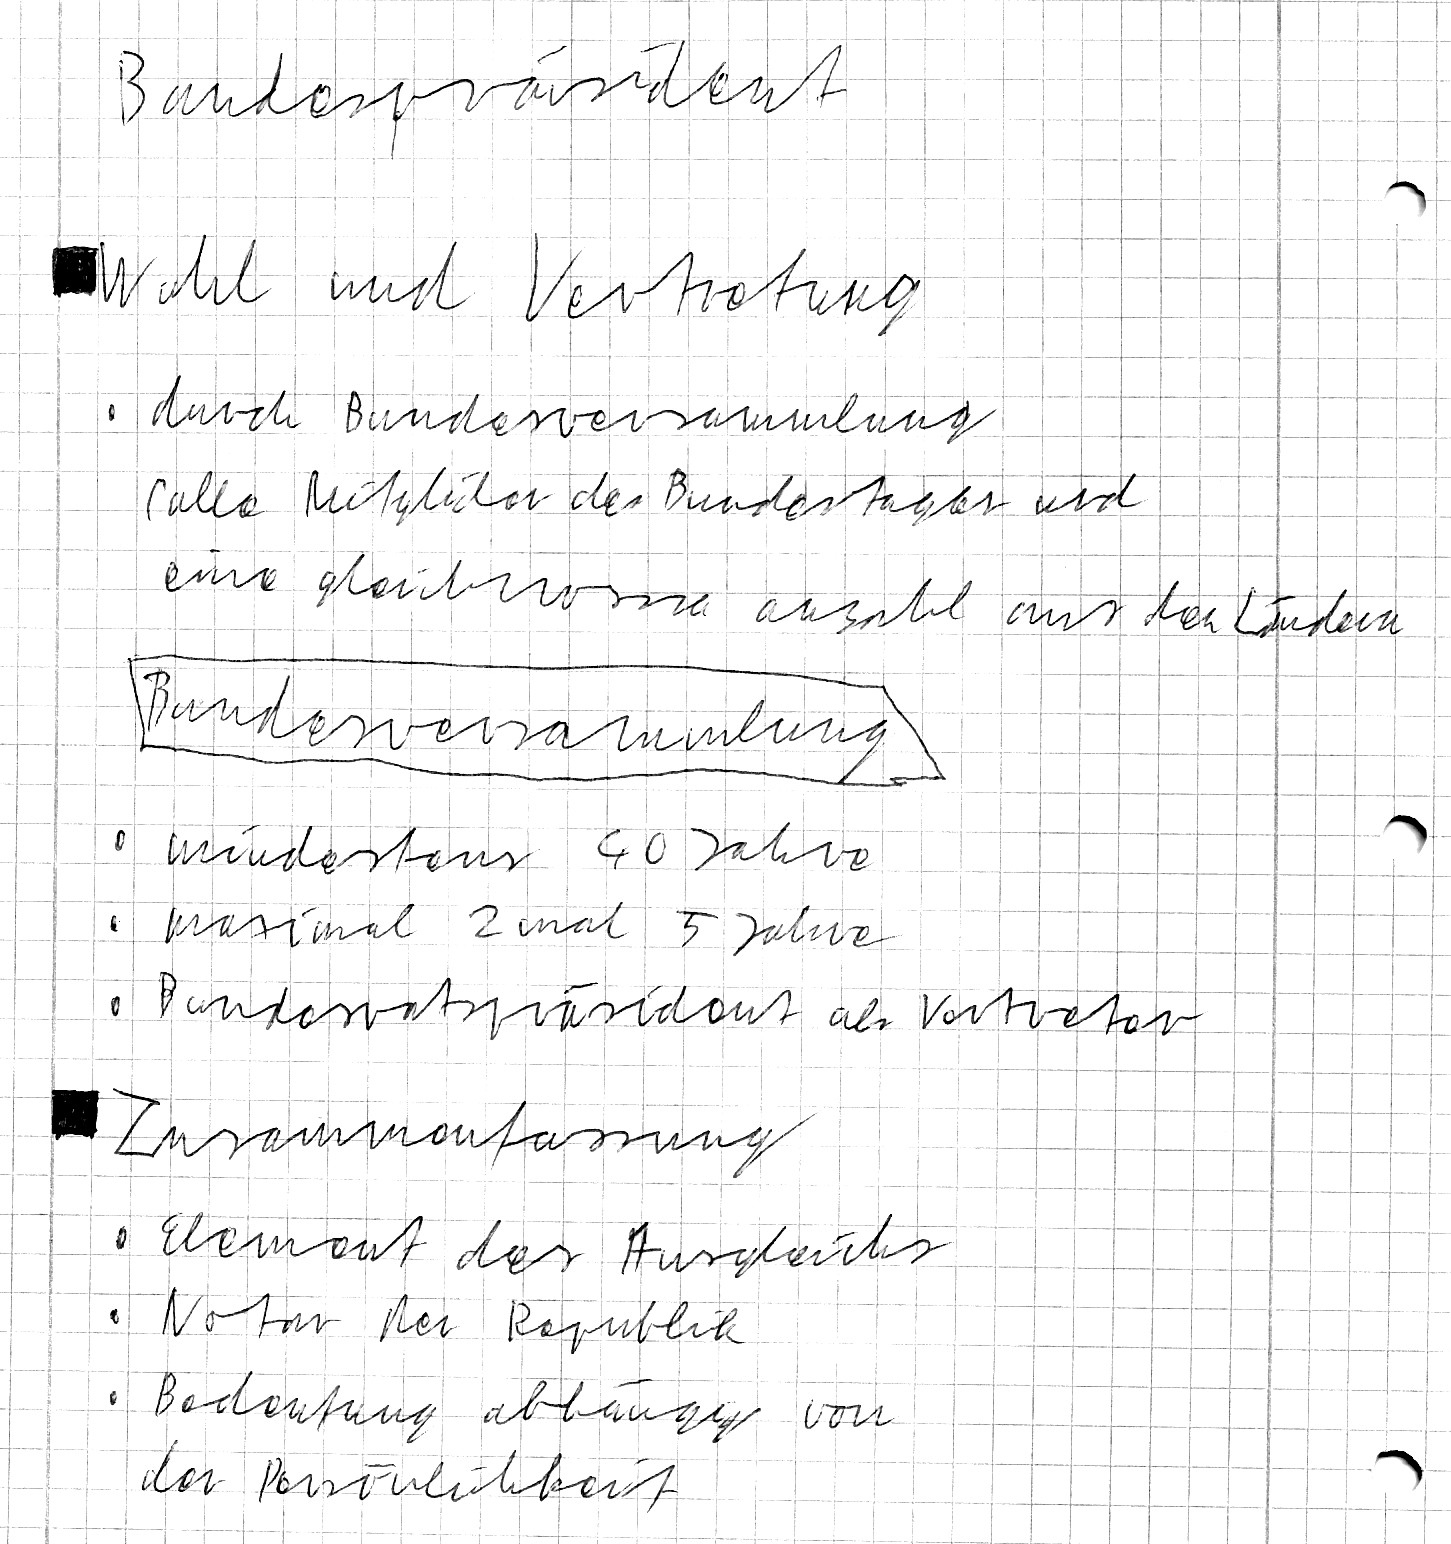 Bundespräsident
Wahl und Vertretung
• durch Bundesversammlung
(alle Mitglider des Bundestages und
eine gleichgrosse anzahl aus den Ländern
Bundesversammlung
• mindestens 40 Jahre
• maximal 2 mal 5 Jahre
• Bundesratspräsident als Vertreter
Zusammenfassung
• Element des Ausgleichs
• Notar der Republik
• Bedeutung abhängig von
der Persönlichkeit